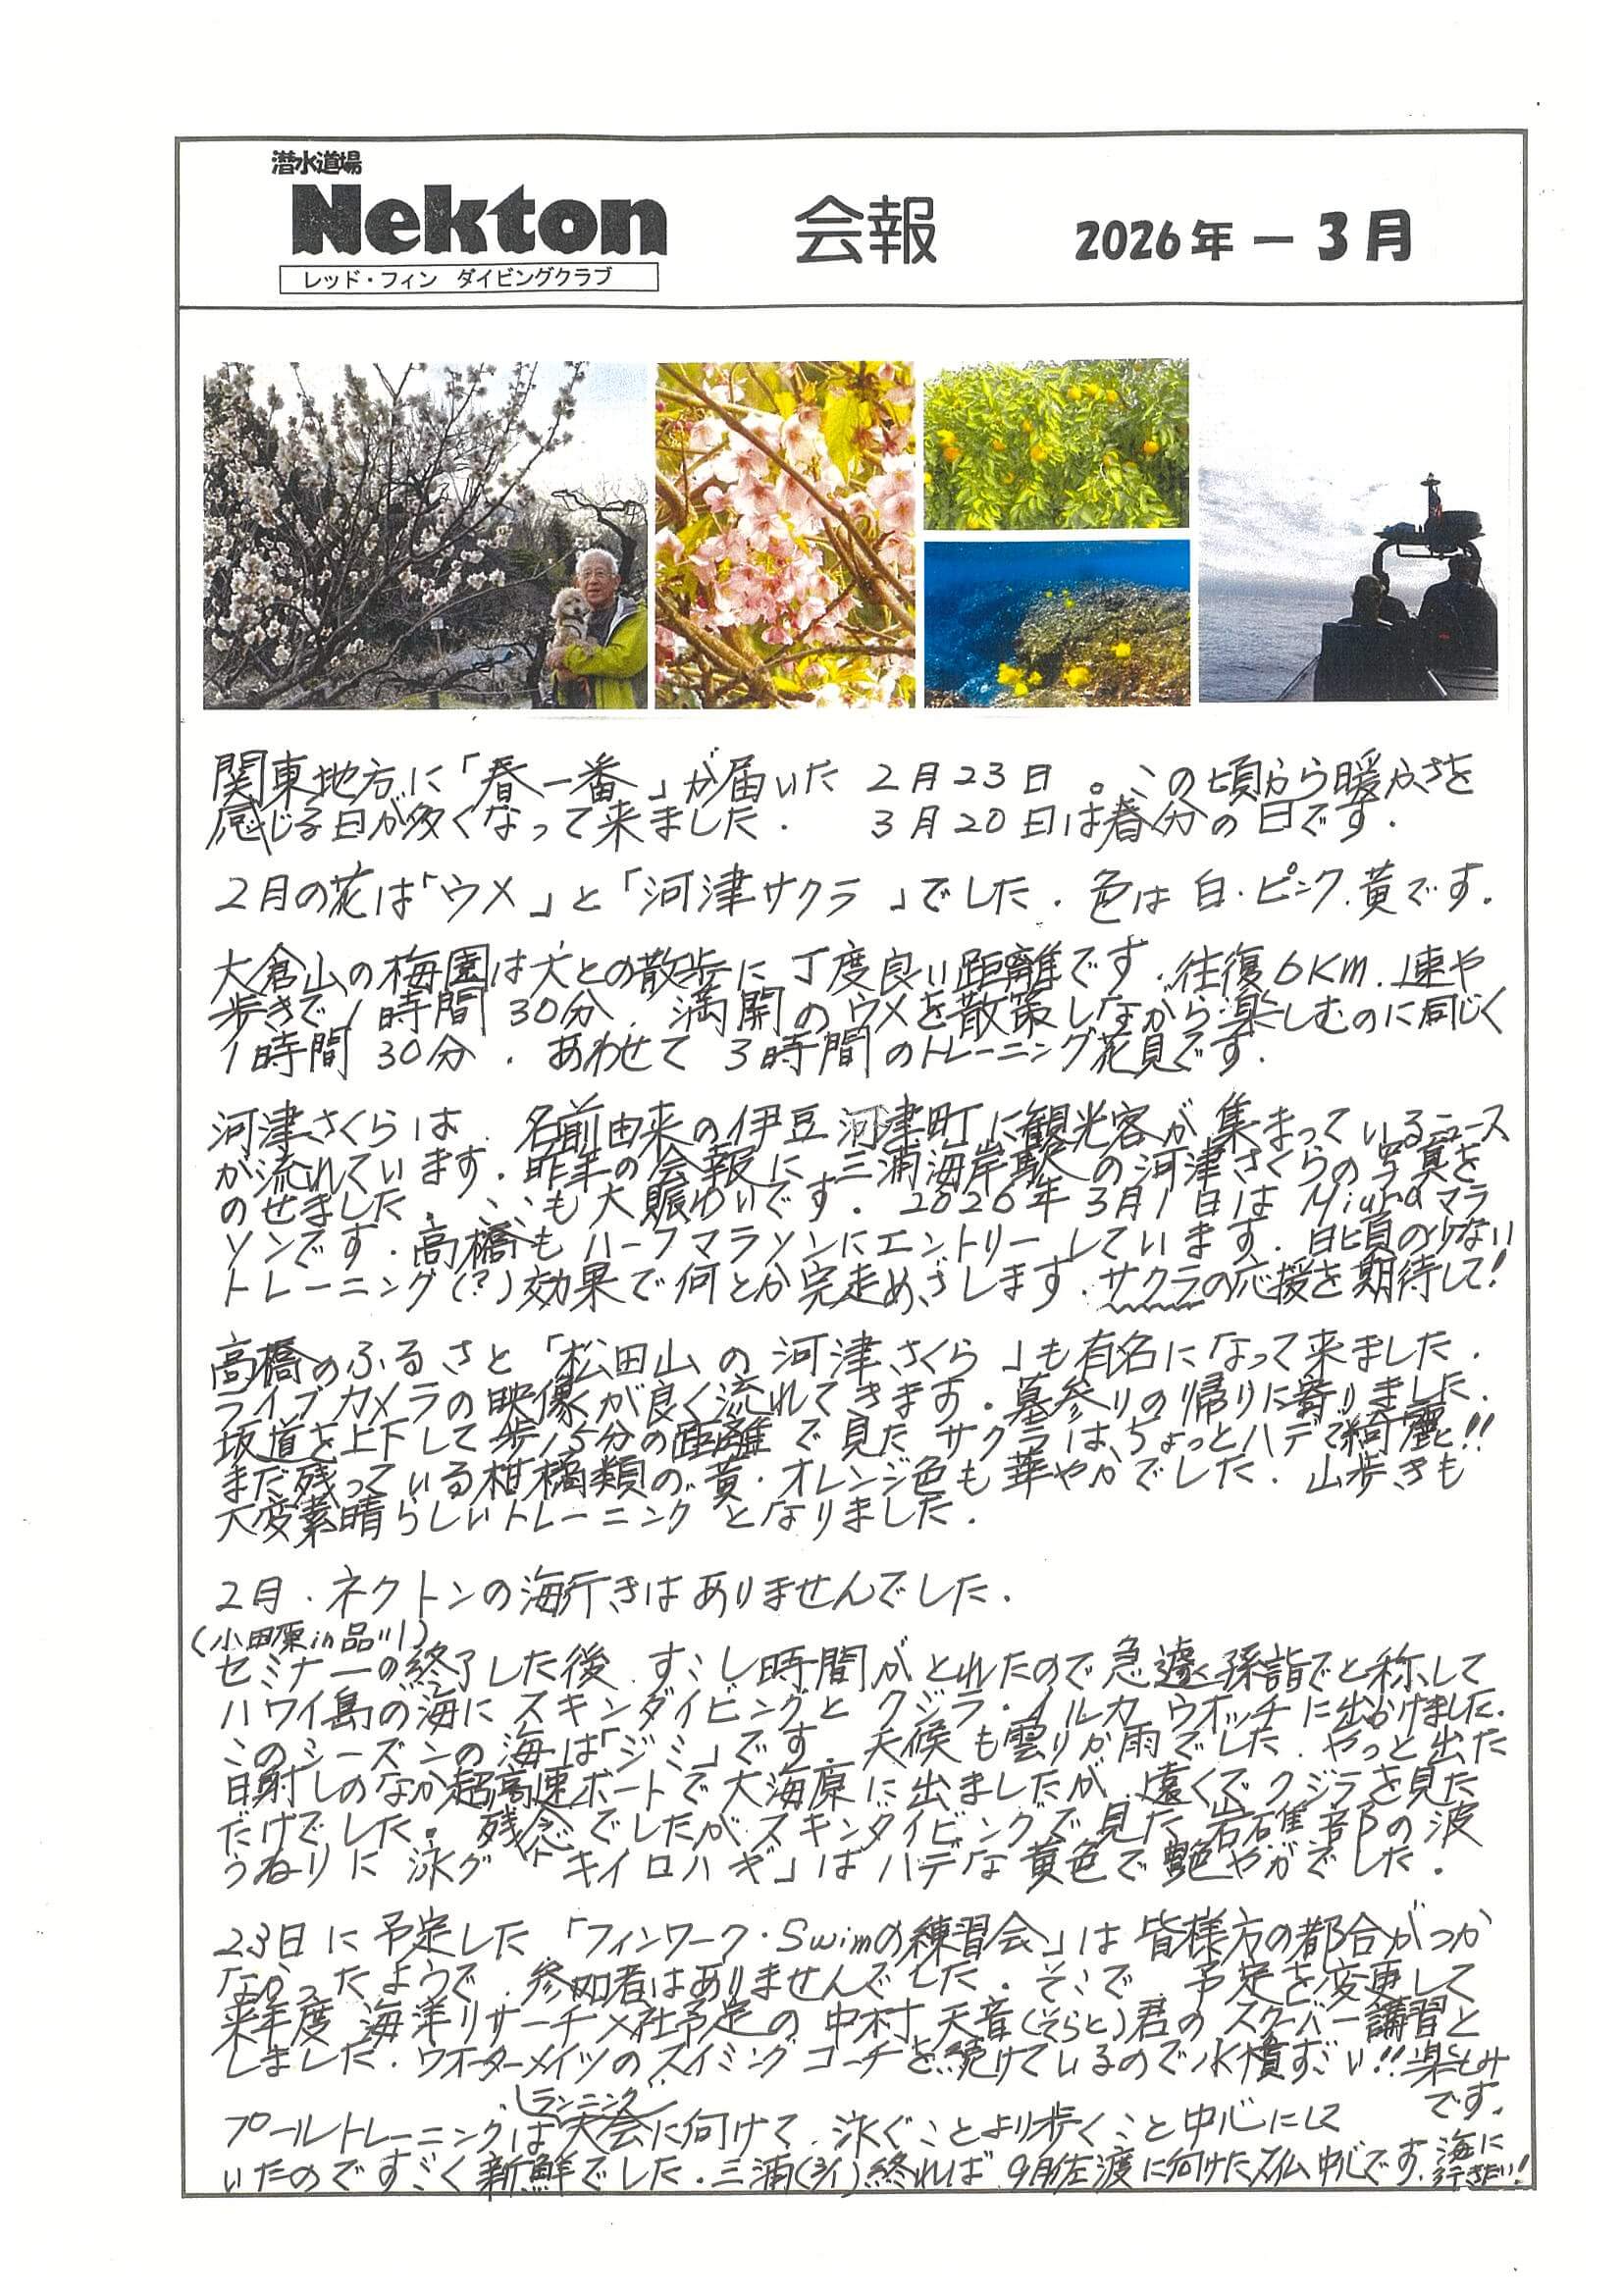 潜水道場
Nekton
レッド・フィン ダイビングクラブ
会報
2026年－3月
関東地方に「春一番」が届いた 2月23日。この頃から暖かさを
感じる日が多くなって来ました. 3月20日は春分の日です.
2月の花は「ウメ」と「河津サクラ」でした. 色は 白・ピンク.黄です.
大倉山の梅園は犬との散歩に丁度良い距離です.往復6Km.速や
歩きで1時間30分. 満開のウメを散策しながら楽しむのに同じく
1時間30分. あわせて3時間のトレーニング花見です.
河津さくらは. 名前由来の伊豆河津町に観光客が集まっているニュース
が流れています. 昨年の会報に三浦海岸駅の河津さくらの写真を
のせました. ここも大賑わいです. 2026年3月1日は Miuraマラ
ソンです. 高橋もハーフマラソンにエントリーしています. 日頃の少ない
トレーニング(?)効果で何とか完走めざします.サクラの応援を期待して!
高橋のふるさと「松田山の河津さくら」も有名になって来ました.
ライブカメラの映像が良く流れてきます. 墓参りの帰りに寄りました.
坂道を上下して歩15分の距離で見たサクラは、ちょっとハデで綺麗!!
まだ残っている柑橘類の黄・オレンジ色も華やかでした. 山歩きも
大変素晴らしいトレーニングとなりました.
2月.ネクトンの海行きはありませんでした.
(小田原in品川)
セミナーの終了した後 すこし時間がとれたので急遽孫詣でと称して
ハワイ島の海に スキンダイビングと クジラ・イルカ ウオッチに出かけました.
このシーズンの海は「ジミ」です. 天候も曇りか雨でした. やっと出た
日射しのなか超高速ボートで大海原に出ましたが.遠くでクジラを見た
だけでした. 残念でしたがスキンダイビングで見た 岩礁部の波
うねりに泳グ「キイロハギ」は ハデな黄色で艶やかでした.
23日に予定した「フィンワーク・Swimの練習会」は皆様方の都合がつか
なかったようで.参加者はありませんでした. そこで 予定を変更して
来年度 海洋リサーチ入社予定の 中村天音(そらと)君のスクーバー講習と
しました. ウオーターメイツのスイミングコーチを続けているので水慣すごい!!楽しみ
です.
ランニング
プールトレーニングは大会に向けて.泳ぐことより歩くこと中心にして
いたのですごく新鮮でした. 三浦(3/1)終れば 9月佐渡に向けたスイム中心です.海に
行きたい!